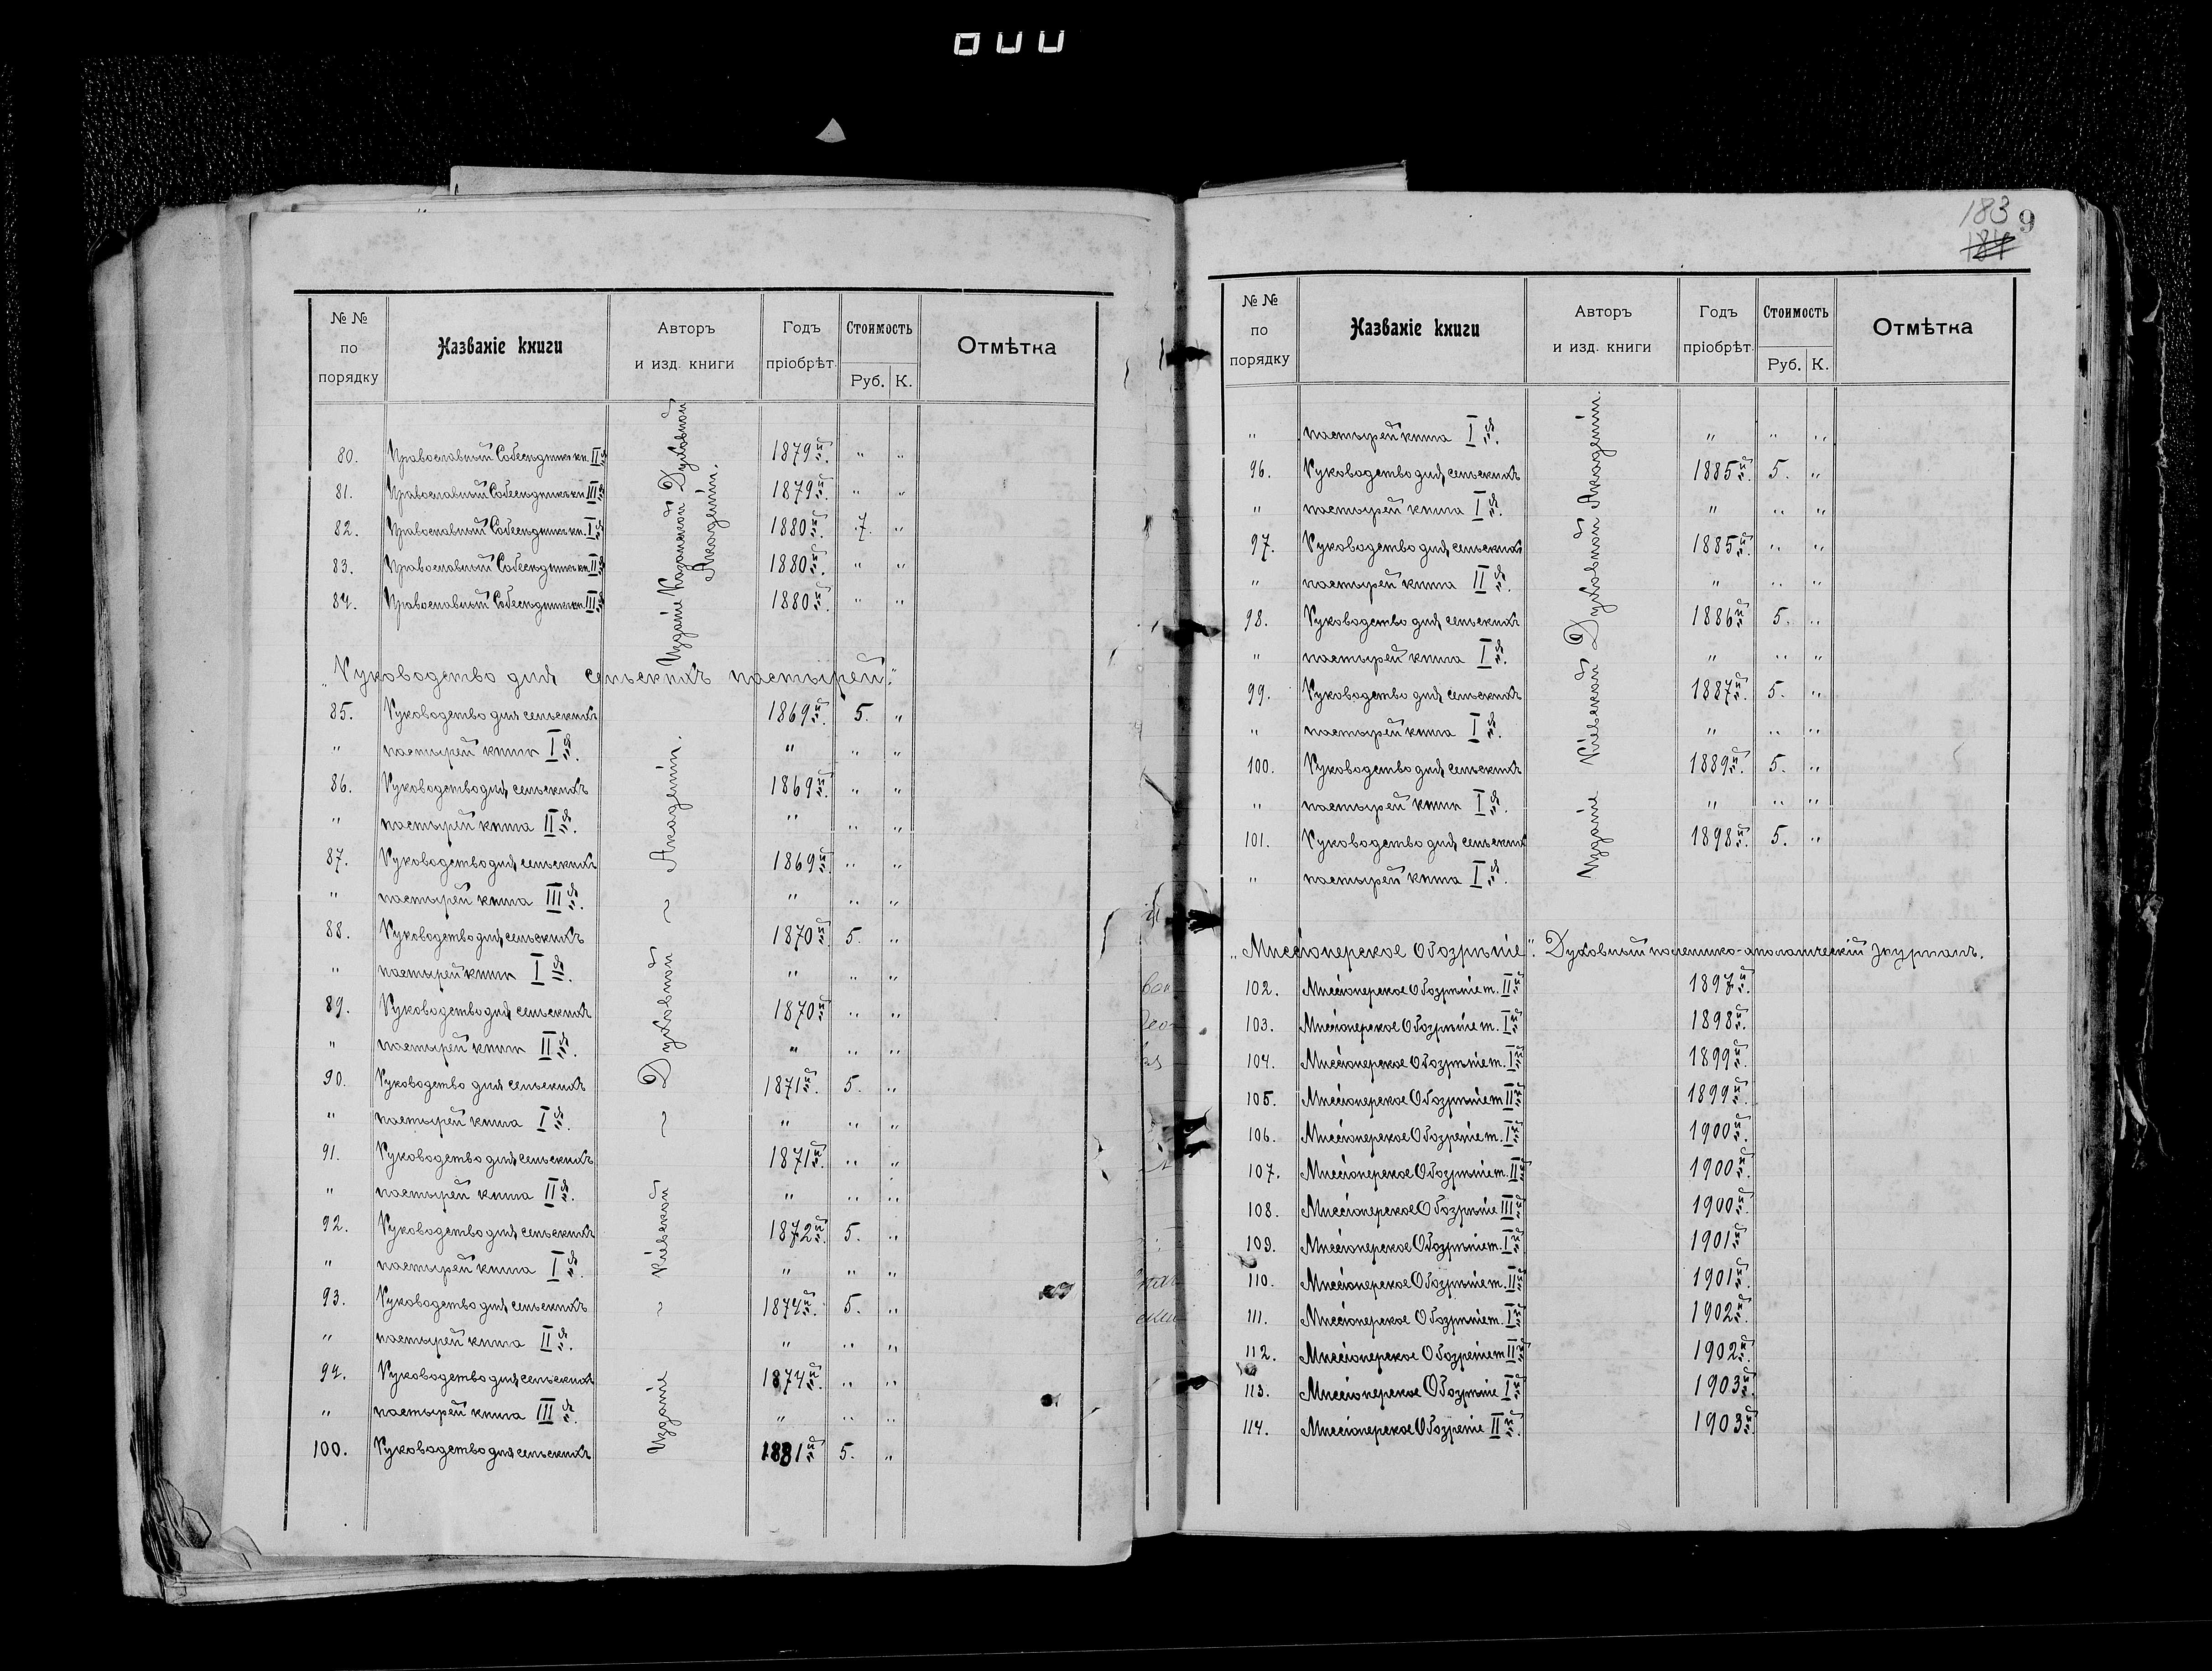 № № по порядку Названіе книги Авторъ и изд. книги Годъ пріобрѣт. Стоимость Руб. К. Отмѣтка
Изданіе Казанской Духовной
Академіи.
80. Православный Собесѣдникъ кн. II я. 1879 й. " "
81. Православный Собесѣдникъ кн. III я. 1879 й. " "
82. Православный Собесѣдникъ кн. I я. 1880 й. 7. "
83. Православный Собесѣдникъ кн. II я. 1880 й. " "
84. Православный Собесѣдникъ кн. III я. 1880 й. " "
„Руководство для сельскихъ пастырей".
Изданіе ~ Кіевской ~ Духовной ~ Академіи.
85. Руководство для сельскихъ 1869 й. 5. "
" пастырей книга I я. " " "
86. Руководство для сельскихъ 1869 й. " "
" пастырей книга II я. " " "
87. Руководство для сельскихъ 1869 й. " "
" пастырей книга III я. " " "
88. Руководство для сельскихъ 1870 й. 5. "
" пастырей книга I я. " " "
89. Руководство для сельскихъ 1870 й. " "
" пастырей книга II я. " " "
90. Руководство для сельскихъ 1871 й. 5. "
" пастырей книга I я. " " "
91. Руководство для сельскихъ 1871 й. " "
" пастырей книга II я. " " "
92. Руководство для сельскихъ 1872 й. 5. "
" пастырей книга I я. " " "
93. Руководство для сельскихъ 1874 й. 5. "
" пастырей книга II я. " " "
94. Руководство для сельскихъ 1874 й. " "
" пастырей книга III я. " " "
100. Руководство для сельскихъ 1881 й. 5. "
183 9
184
№ № по порядку Названіе книги Авторъ и изд. книги Годъ пріобрѣт. Стоимость Руб. К. Отмѣтка
Изданіе Кіевской Духовной Академіи.
" пастырей книга I я. " " "
96. Руководство для сельскихъ 1885 й. 5. "
" пастырей книга I я. " " "
97. Руководство для сельскихъ 1885 й. " "
" пастырей книга II я. " " "
98. Руководство для сельскихъ 1886 й. 5. "
" пастырей книга I я. " " "
99. Руководство для сельскихъ 1887 й. 5. "
" пастырей книга I я. " " "
100. Руководство для сельскихъ 1889 й. 5. "
" пастырей книга I я. " " "
101. Руководство для сельскихъ 1898 й. 5. "
" пастырей книга I я.
„Миссіонерское Обозрѣніе". Духовный полемико-апологическій журналъ.
102. Миссіонерское Обозрѣніе т. II й 1897 й.
103. Миссіонерское Обозрѣніе т. I й 1898 й.
104. Миссіонерское Обозрѣніе т. I й 1899 й.
105. Миссіонерское Обозрѣніе т II й 1899 й.
106. Миссіонерское Обозреніе т. I й 1900 й.
107. Миссіонерское Обозрѣніе т. II й 1900 й.
108. Миссіонерское Обозрѣніе III й 1900 й.
109. Миссіонерское Обозрѣніе т. I й 1901 й
110. Миссіонерское Обозрѣніе т. II й 1901 й.
111. Миссіонерское Обозрѣніе т. I й 1902 й.
112. Миссіонерское Обозреніе т II й 1902 й.
113. Миссіонерское Обозрѣніе I й 1903 й.
114. Миссіонерское Обозреніе II й. 1903 й.